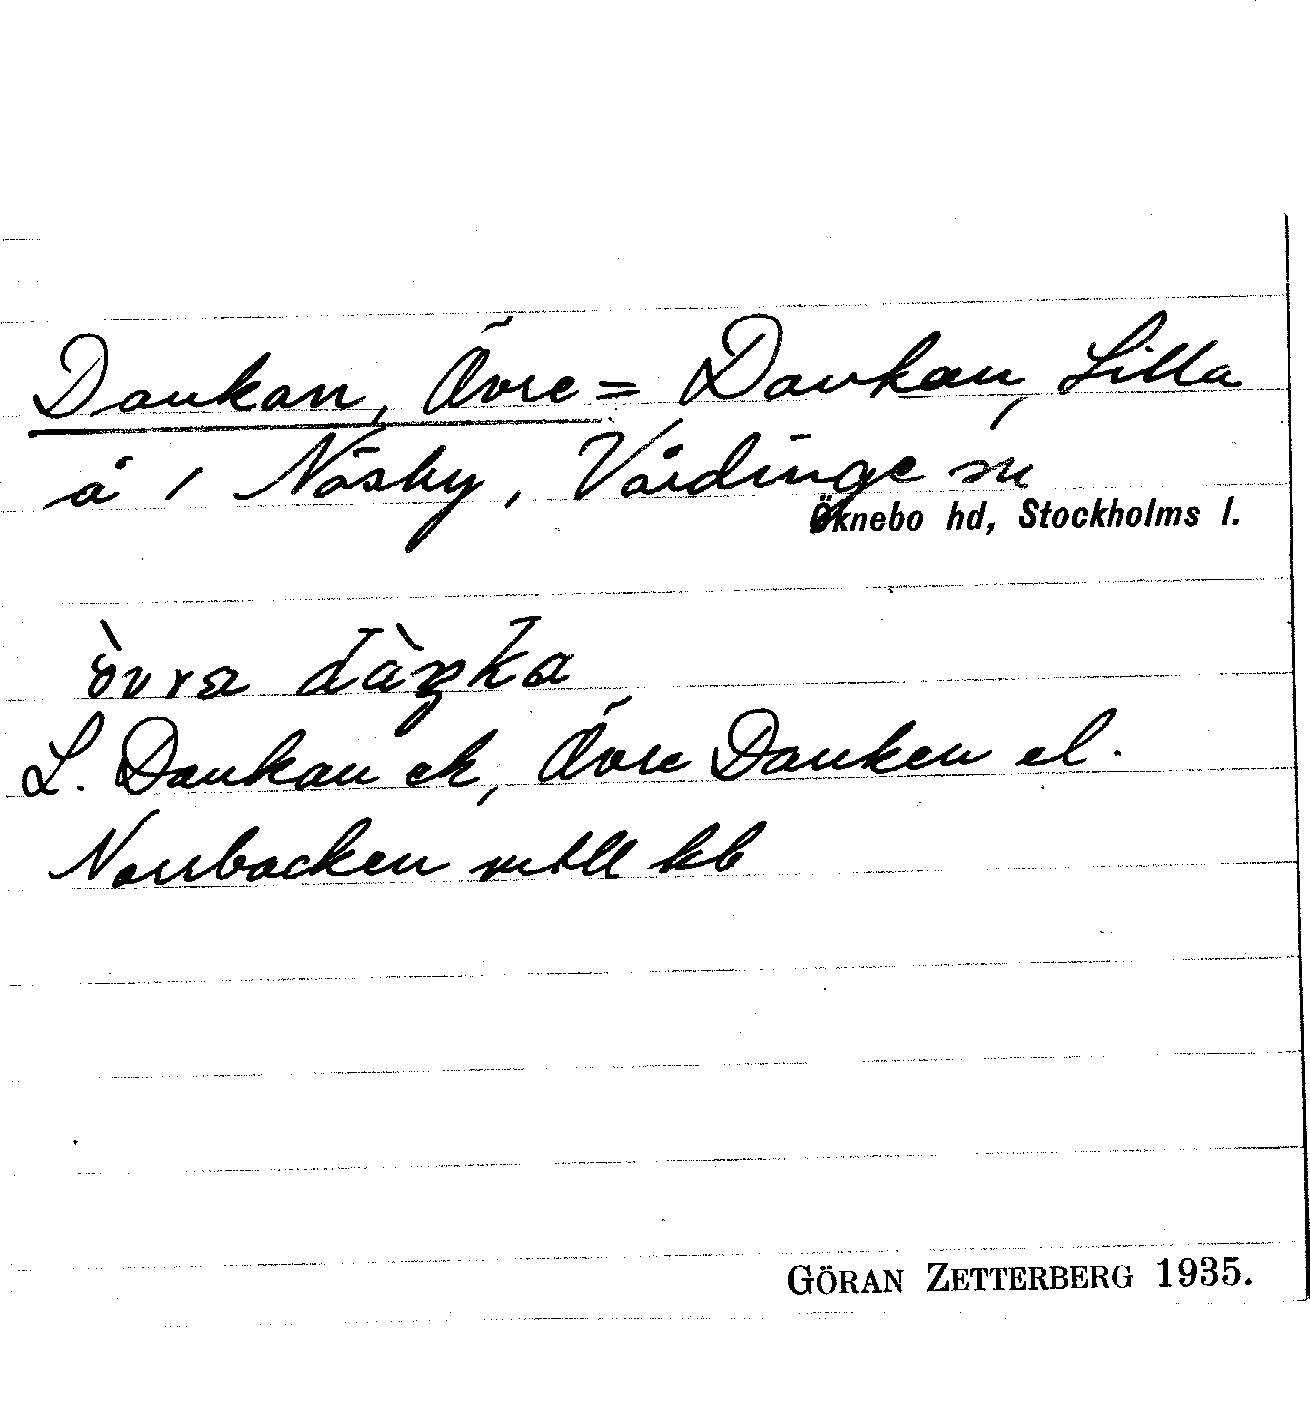 Dankan, Övre = Dankan, Lilla
å / Näsby, Vårdinge sn
Öknebo hd, Stockholms l.
övra dàŋka
L. Dankan ek, Övre Danken el.
Norrbacken mtll kb
GÖRAN ZETTERBERG 1935.